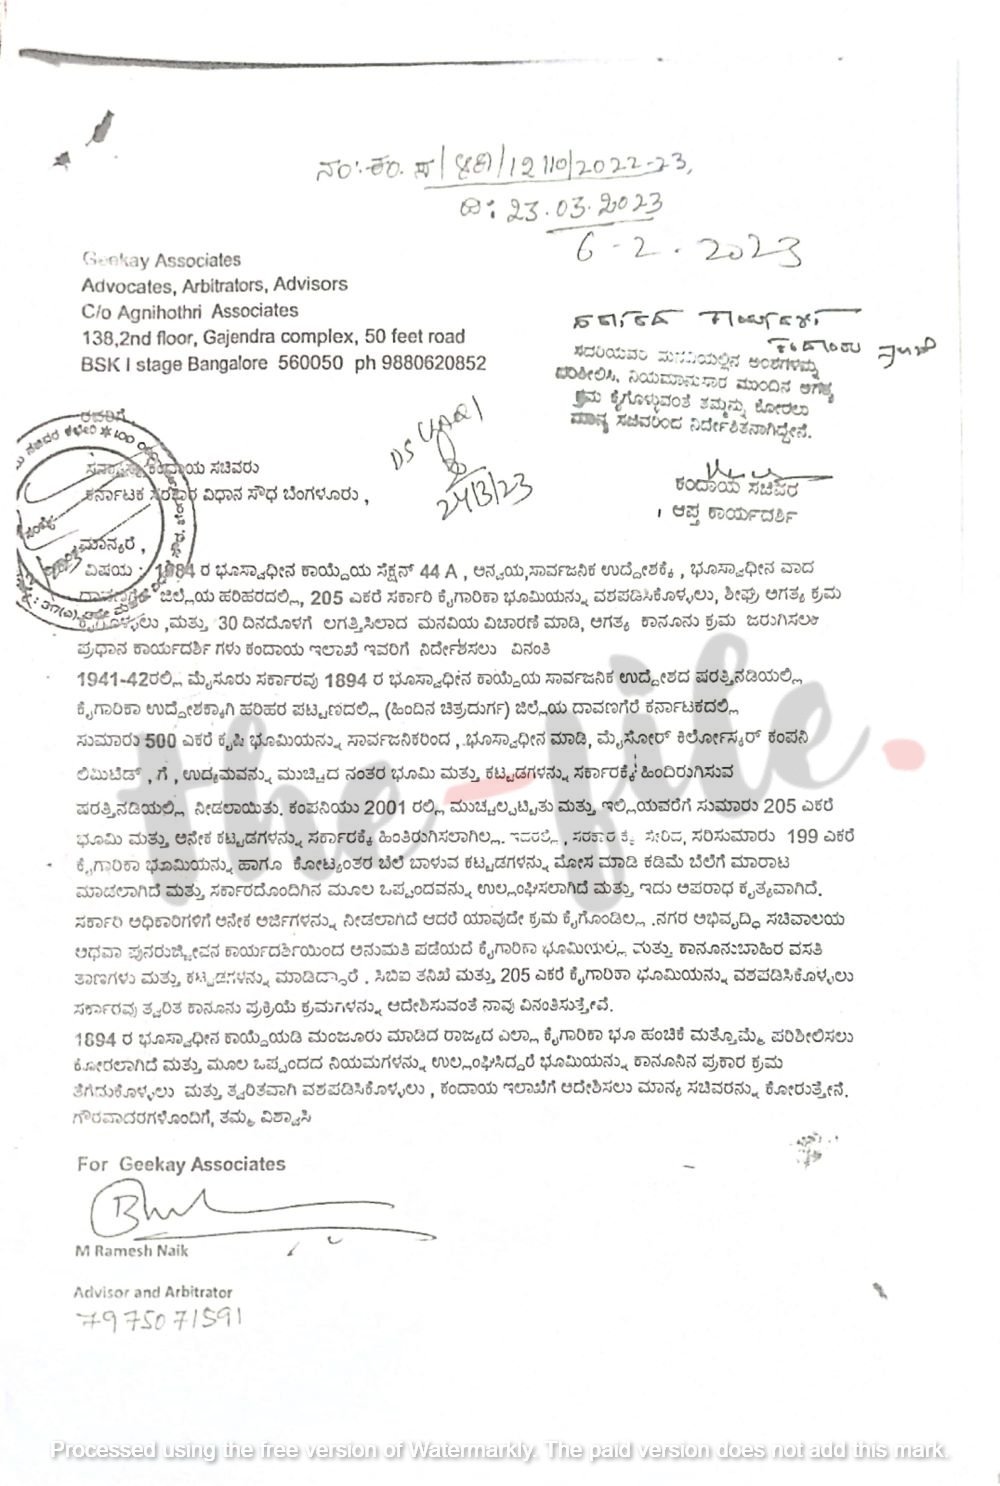 ದಿ: 23.03.2023
6-2.2023
Geekay Associates
Advocates, Arbitrators, Advisors
C/o Agnihothri Associates
138,2nd floor, Gajendra complex, 50 feet road
BSK I stage Bangalore 560050 ph 9880620852
ಸದರಿಯವರ ಮನವಿಯಲ್ಲಿನ ಅಂಶಗಳನ್ನು
ಪರಿಶೀಲಿಸಿ, ನಿಯಮಾನುಸಾರ ಮುಂದಿನ ಅಗತ್ಯ
ಕ್ರಮ ಕೈಗೊಳ್ಳುವಂತೆ ತಮ್ಮನ್ನು ಕೋರಲು
ಮಾನ್ಯ ಸಚಿವರಿಂದ ನಿರ್ದೇಶಿತನಾಗಿದ್ದೇನೆ.
ಕಂದಾಯ ಸಚಿವರ
ಆಪ್ತ ಕಾರ್ಯದರ್ಶಿ
DS
24/3/23
ರವರಿಗೆ,
ಕಂದಾಯ ಸಚಿವರು
ಕರ್ನಾಟಕ ಸರಕಾರ ವಿಧಾನ ಸೌಧ ಬೆಂಗಳೂರು ,
ಮಾನ್ಯರೆ ,
ವಿಷಯ : 1894 ರ ಭೂಸ್ವಾಧೀನ ಕಾಯ್ದೆಯ ಸೆಕ್ಷನ್ 44 A , ಅನ್ವಯ,ಸಾರ್ವಜನಿಕ ಉದ್ದೇಶಕ್ಕೆ , ಭೂಸ್ವಾಧೀನ ವಾದ
ದಾವಣಗೆರೆ ಜಿಲ್ಲೆಯ ಹರಿಹರದಲ್ಲಿ, 205 ಎಕರೆ ಸರ್ಕಾರಿ ಕೈಗಾರಿಕಾ ಭೂಮಿಯನ್ನು ವಶಪಡಿಸಿಕೊಳ್ಳಲು, ಶೀಘ್ರ ಅಗತ್ಯ ಕ್ರಮ
ಕೈಗೊಳ್ಳಲು ,ಮತ್ತು 30 ದಿನದೊಳಗೆ ಲಗತ್ತಿಸಿಲಾದ ಮನವಿಯ ವಿಚಾರಣೆ ಮಾಡಿ, ಅಗತ್ಯ ಕಾನೂನು ಕ್ರಮ ಜರುಗಿಸಲು
ಪ್ರಧಾನ ಕಾರ್ಯದರ್ಶಿ ಗಳು ಕಂದಾಯ ಇಲಾಖೆ ಇವರಿಗೆ ನಿರ್ದೇಶಸಲು ವಿನಂತಿ
1941-42ರಲ್ಲಿ ಮೈಸೂರು ಸರ್ಕಾರವು 1894 ರ ಭೂಸ್ವಾಧೀನ ಕಾಯ್ದೆಯ ಸಾರ್ವಜನಿಕ ಉದ್ದೇಶದ ಷರತ್ತಿನಡಿಯಲ್ಲಿ
ಕೈಗಾರಿಕಾ ಉದ್ದೇಶಕ್ಕಾಗಿ ಹರಿಹರ ಪಟ್ಟಣದಲ್ಲಿ (ಹಿಂದಿನ ಚಿತ್ರದುರ್ಗ) ಜಿಲ್ಲೆಯ ದಾವಣಗೆರೆ ಕರ್ನಾಟಕದಲ್ಲಿ
ಸುಮಾರು 500 ಎಕರೆ ಕೃಷಿ ಭೂಮಿಯನ್ನು ಸಾರ್ವಜನಿಕರಿಂದ , ಭೂಸ್ವಾಧೀನ ಮಾಡಿ, ಮೈಸೋರ್ ಕಿರ್ಲೋಸ್ಕರ್ ಕಂಪನಿ
ಲಿಮಿಟೆಡ್ , ಗೆ , ಉದ್ಯಮವನ್ನು ಮುಚ್ಚಿದ ನಂತರ ಭೂಮಿ ಮತ್ತು ಕಟ್ಟಡಗಳನ್ನು ಸರ್ಕಾರಕ್ಕೆ ಹಿಂದಿರುಗಿಸುವ
ಷರತ್ತಿನಡಿಯಲ್ಲಿ ನೀಡಲಾಯಿತು. ಕಂಪನಿಯು 2001 ರಲ್ಲಿ ಮುಚ್ಚಲ್ಪಟ್ಟಿತು ಮತ್ತು ಇಲ್ಲಿಯವರೆಗೆ ಸುಮಾರು 205 ಎಕರೆ
ಭೂಮಿ ಮತ್ತು ಅನೇಕ ಕಟ್ಟಡಗಳನ್ನು ಸರ್ಕಾರಕ್ಕೆ ಹಿಂತಿರುಗಿಸಲಾಗಿಲ್ಲ. ಇದರಲ್ಲಿ , ಸರಕಾರಕ್ಕೆ ಸೇರಿದ, ಸರಿಸುಮಾರು 199 ಎಕರೆ
ಕೈಗಾರಿಕಾ ಭೂಮಿಯನ್ನು ಹಾಗೂ ಕೋಟ್ಯಂತರ ಬೆಲೆ ಬಾಳುವ ಕಟ್ಟಡಗಳನ್ನು ಮೋಸ ಮಾಡಿ ಕಡಿಮೆ ಬೆಲೆಗೆ ಮಾರಾಟ
ಮಾಡಲಾಗಿದೆ ಮತ್ತು ಸರ್ಕಾರದೊಂದಿಗಿನ ಮೂಲ ಒಪ್ಪಂದವನ್ನು ಉಲ್ಲಂಘಿಸಲಾಗಿದೆ ಮತ್ತು ಇದು ಅಪರಾಧ ಕೃತ್ಯವಾಗಿದೆ.
ಸರ್ಕಾರಿ ಅಧಿಕಾರಿಗಳಿಗೆ ಅನೇಕ ಅರ್ಜಿಗಳನ್ನು ನೀಡಲಾಗಿದೆ ಆದರೆ ಯಾವುದೇ ಕ್ರಮ ಕೈಗೊಂಡಿಲ್ಲ .ನಗರ ಅಭಿವೃದ್ಧಿ ಸಚಿವಾಲಯ
ಅಥವಾ ಪುನರುಜ್ಜೀವನ ಕಾರ್ಯದರ್ಶಿಯಿಂದ ಅನುಮತಿ ಪಡೆಯದೆ ಕೈಗಾರಿಕಾ ಭೂಮಿಯಲ್ಲಿ ಮತ್ತು ಕಾನೂನುಬಾಹಿರ ವಸತಿ
ತಾಣಗಳು ಮತ್ತು ಕಟ್ಟಡಗಳನ್ನು ಮಾಡಿದ್ದಾರೆ . ಸಿಬಿಐ ತನಿಖೆ ಮತ್ತು 205 ಎಕರೆ ಕೈಗಾರಿಕಾ ಭೂಮಿಯನ್ನು ವಶಪಡಿಸಿಕೊಳ್ಳಲು
ಸರ್ಕಾರವು ತ್ವರಿತ ಕಾನೂನು ಪ್ರಕ್ರಿಯೆ ಕ್ರಮಗಳನ್ನು ಆದೇಶಿಸುವಂತೆ ನಾವು ವಿನಂತಿಸುತ್ತೇವೆ.
1894 ರ ಭೂಸ್ವಾಧೀನ ಕಾಯ್ದೆಯಡಿ ಮಂಜೂರು ಮಾಡಿದ ರಾಜ್ಯದ ಎಲ್ಲಾ ಕೈಗಾರಿಕಾ ಭೂ ಹಂಚಿಕೆ ಮತ್ತೊಮ್ಮೆ ಪರಿಶೀಲಿಸಲು
ಕೋರಲಾಗಿದೆ ಮತ್ತು ಮೂಲ ಒಪ್ಪಂದದ ನಿಯಮಗಳನ್ನು ಉಲ್ಲಂಘಿಸಿದ್ದರೆ ಭೂಮಿಯನ್ನು ಕಾನೂನಿನ ಪ್ರಕಾರ ಕ್ರಮ
ತೆಗೆದುಕೊಳ್ಳಲು ಮತ್ತು ತ್ವರಿತವಾಗಿ ವಶಪಡಿಸಿಕೊಳ್ಳಲು , ಕಂದಾಯ ಇಲಾಖೆಗೆ ಆದೇಶಿಸಲು ಮಾನ್ಯ ಸಚಿವರನ್ನು ಕೋರುತ್ತೇನೆ.
ಗೌರವಾದರಗಳೊಂದಿಗೆ, ತಮ್ಮ ವಿಶ್ವಾಸಿ
For Geekay Associates
M Ramesh Naik
Advisor and Arbitrator
7975071591
the-file.
Processed using the free version of Watermarkly. The paid version does not add this mark.